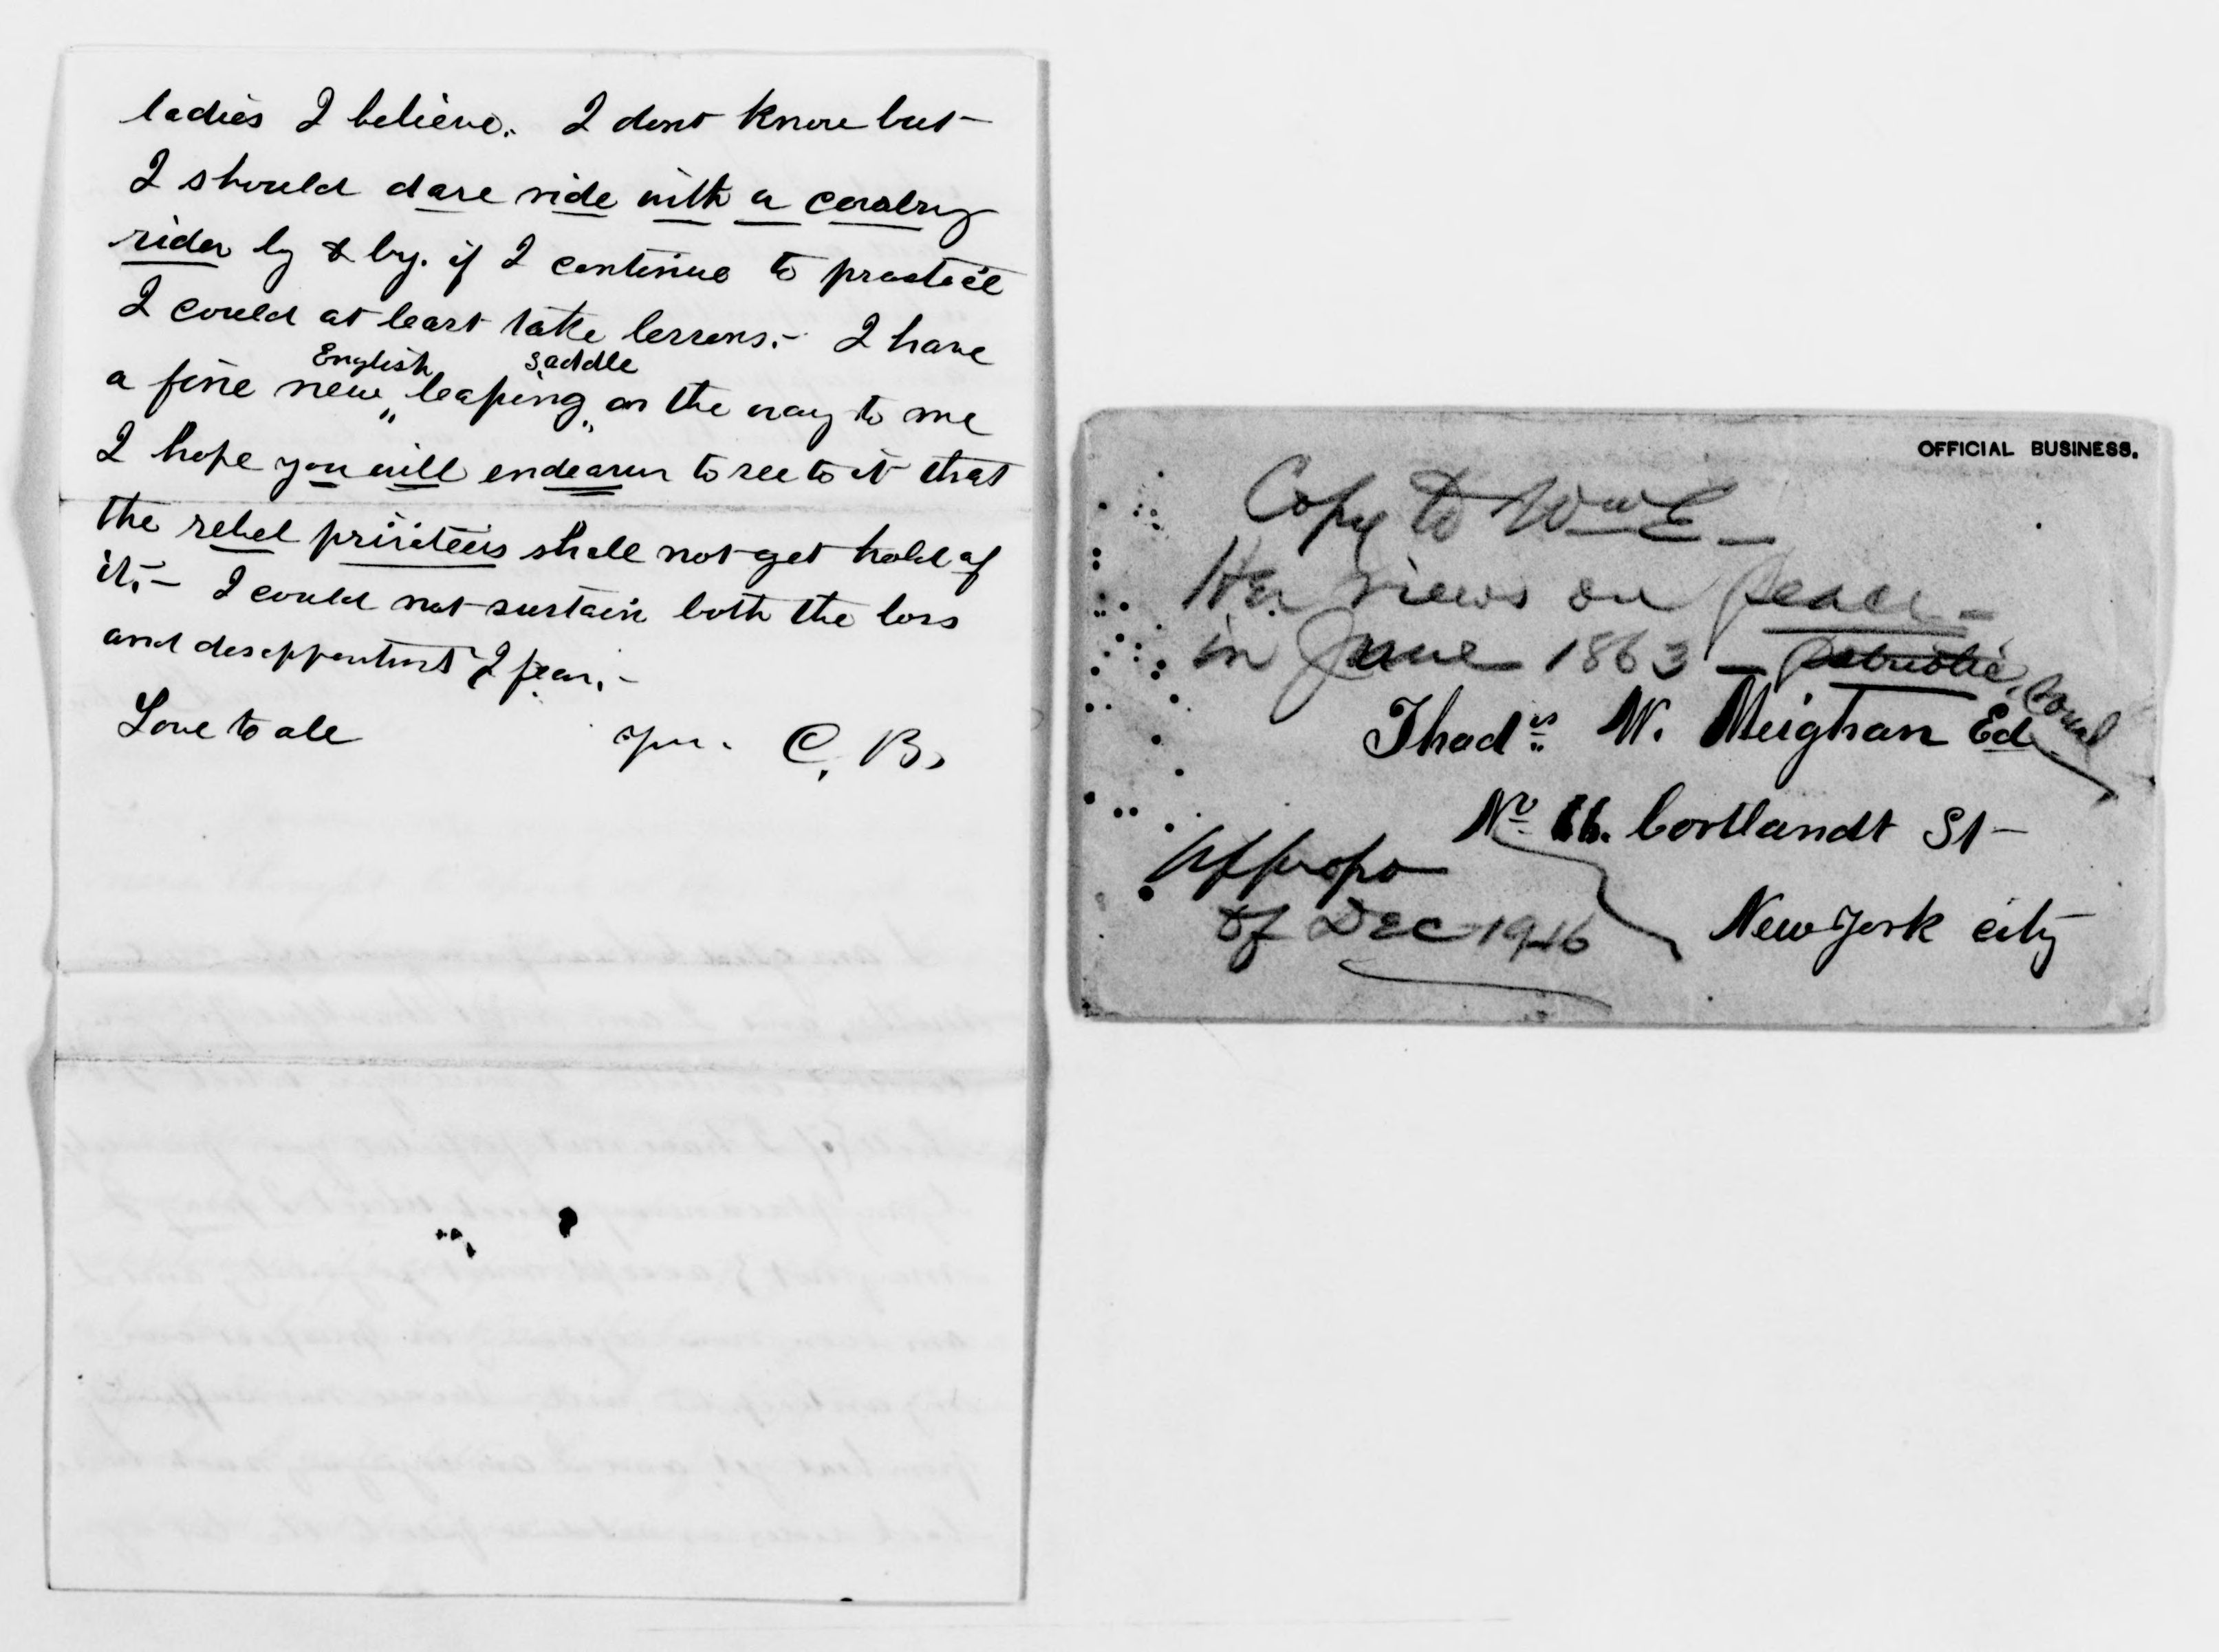 ladies I believe. I dont know but
I should dare ride with a cavalry
rider by & by. if I continue to practice
I could at least take lessons.- I have
English saddle
a fine new "leaping" on the way to me
I hope you will endeavor to see to it that
the rebel privateers shall not get hold of
it.- I could not sustain both the loss
and disappointment I fear.-
Love to all
Yrs. C. B.
OFFICIAL BUSINESS.
Copy to Wm E -
Her views on peace -
in June 1863 - patriotic
Thads W. Meighan Ed
No 16. Cortlandt St
Appropo
of Dec 1916
New York city